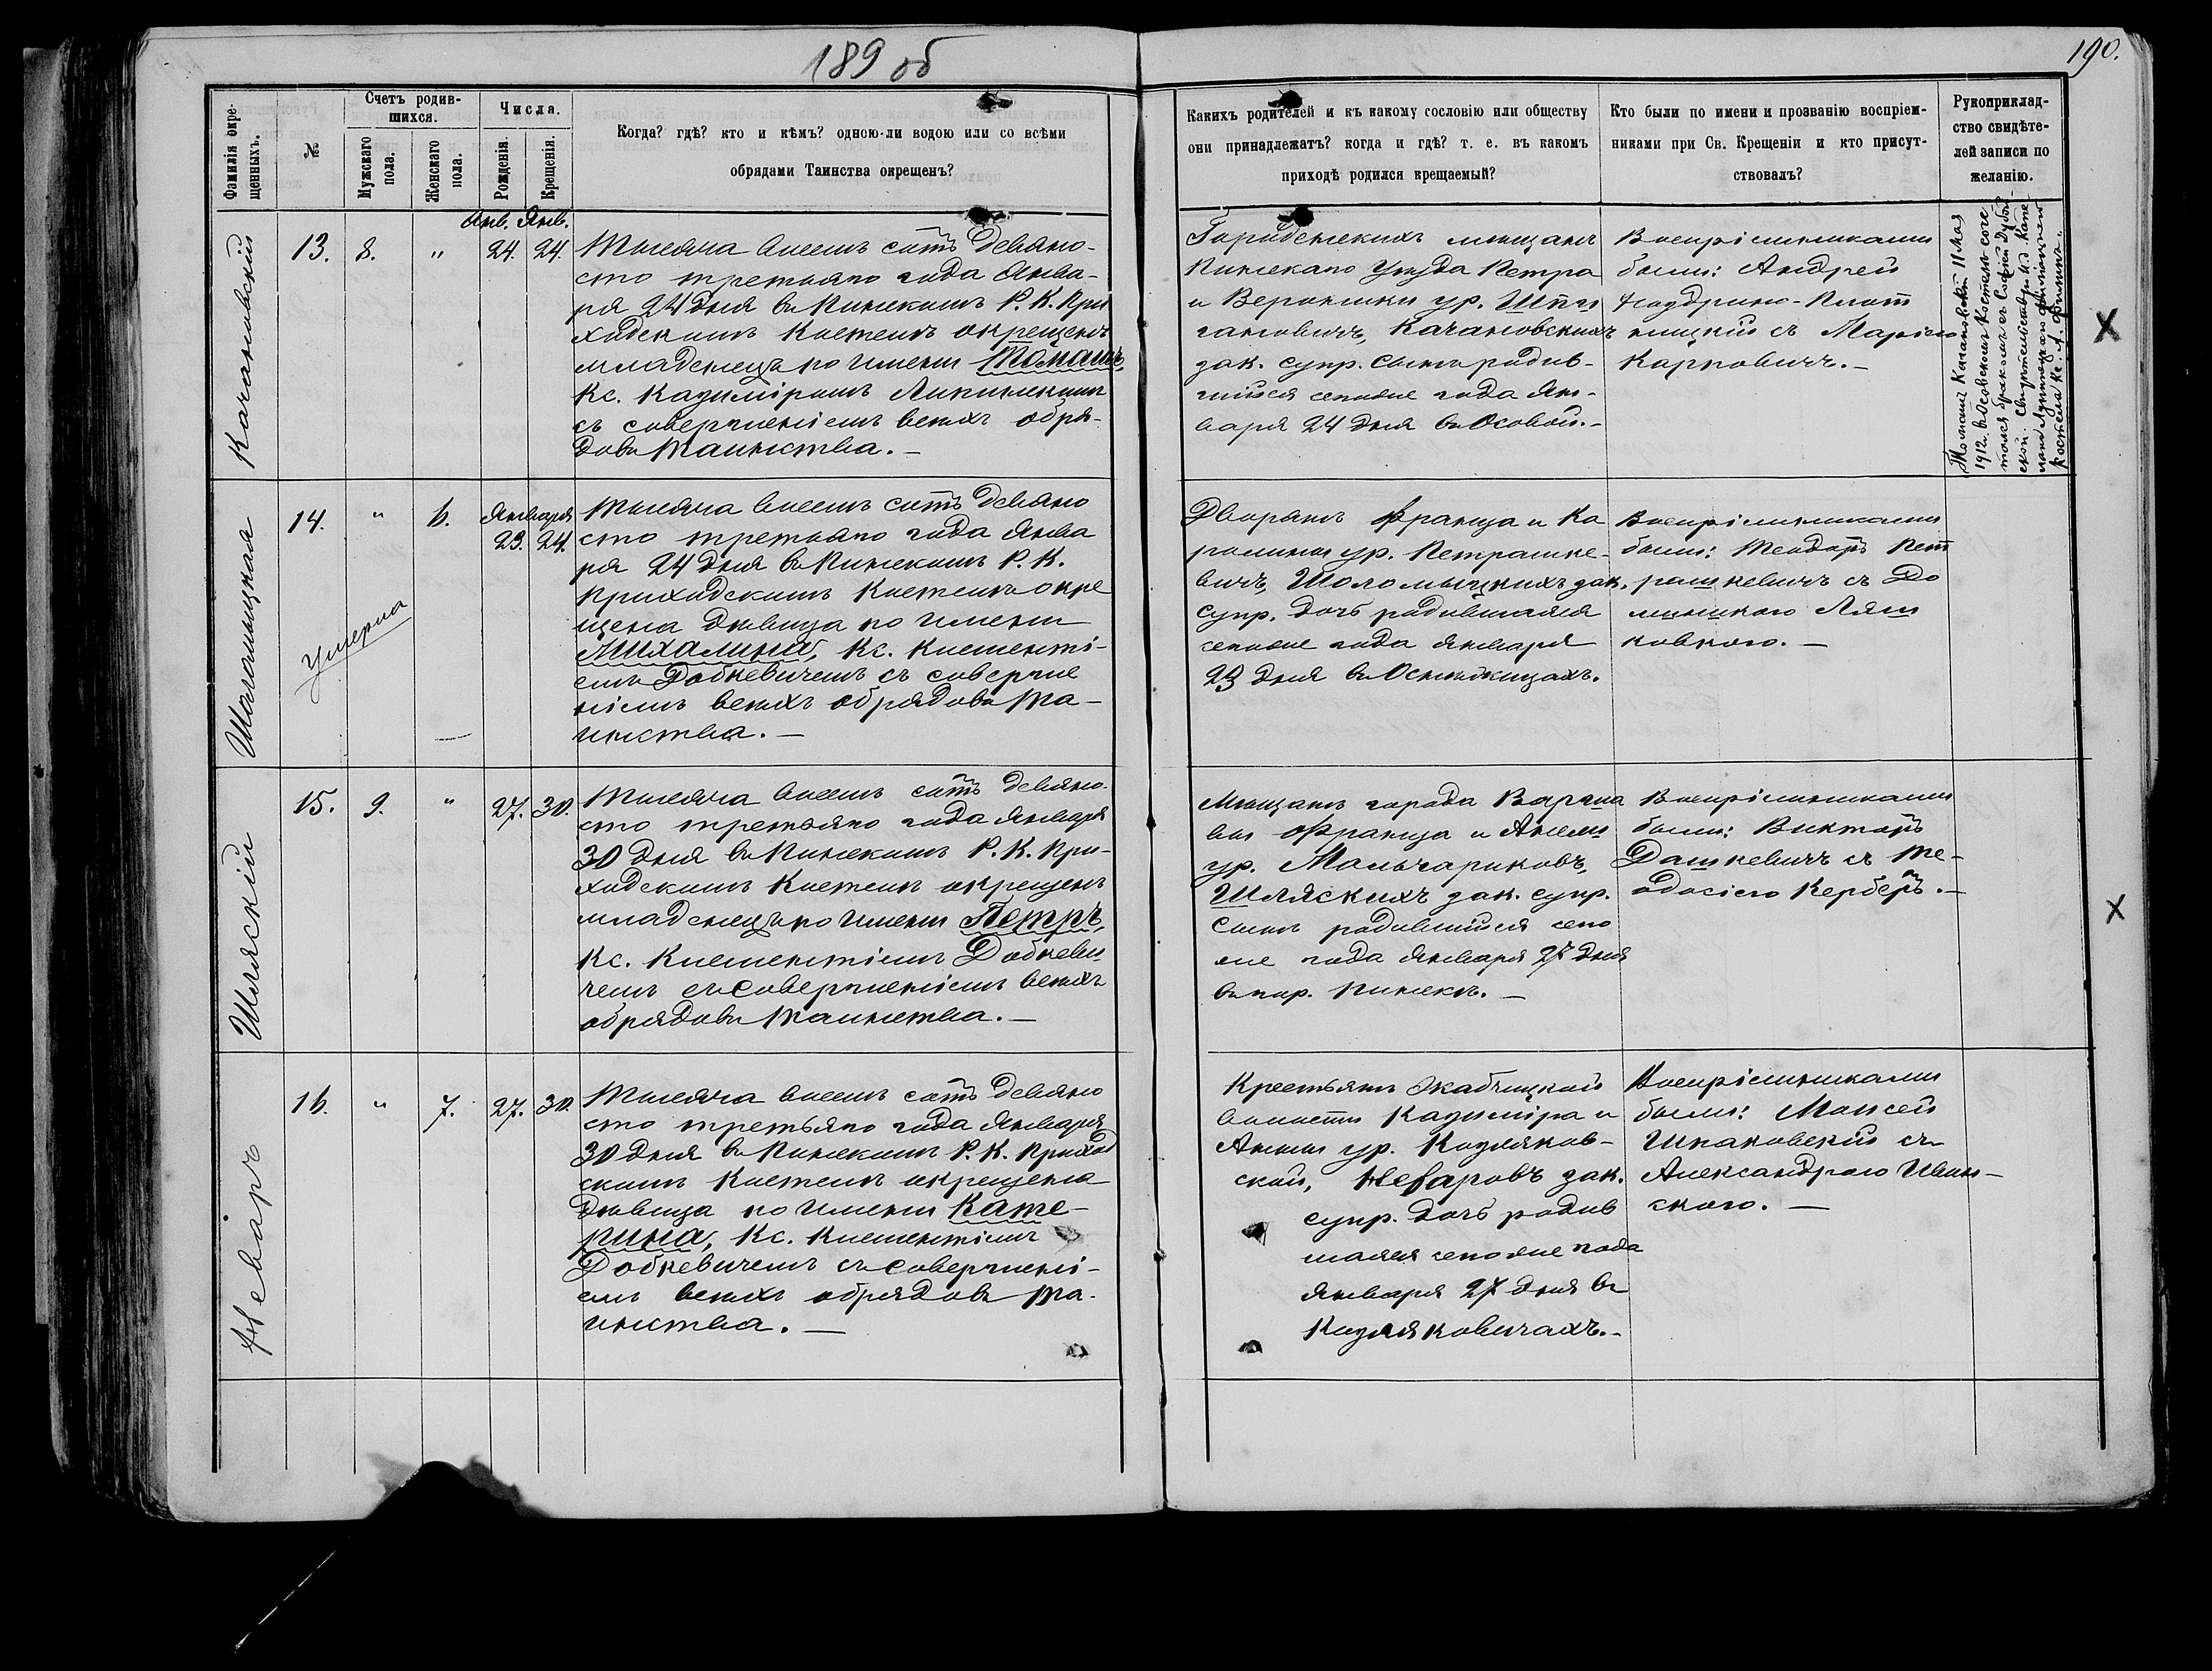 189 об
190.
Фамилія окре-
щенныхъ.
№
Счетъ родив-
шихся.
Мужскаго
пола.
Женскаго
пола.
Числа.
Рожденія.
Крещенія.
Когда? гдѣ? кто и кѣмъ? одною-ли водою или со всѣми
обрядами Таинства окрещенъ?
Какихъ родителей и къ какому сословію или обществу
они принадлежатъ? когда и гдѣ? т. е. въ какомъ
приходѣ родился крещаемый?
Кто были по имени и прозванію воспріем-
никами при Св. Крещеніи и кто присут-
ствовалъ?
Рукоприклад-
ство свидѣте-
лей записи по
желанію.
Качановскій
13.
8.
"
Янв. Янв.
24. 24.
Тысяча восемь сотъ девяно-
сто третьяго года Янва-
ря 24 дня въ Пинскомъ Р. К. При
ходскомъ Костелѣ окрещенъ
младенецъ по имени Томашъ,
Кс. Казиміромъ Липинскимъ
съ совершеніемъ всѣхъ обря-
довъ Таинства. –
Городенскихъ мѣщанъ
Пинскаго Уѣзда Петра
и Вероники ур.
Качановскихъ
зак. супр. сынъ родив-
шійся сегоже года Ян-
варя 24 дня въ Осовой. –
Воспріемниками
были: Андрей
съ Маріею
Карповичъ. –
Томашъ Качановскій 11 Мая
1912. въ Осовскомъ Костелѣ соче
тался бракомъ съ Софіей
Шоломицкая
14.
"
6.
Января
23. 24.
умерла
Тысяча восемь сотъ девяно
сто третьяго года Янва
ря 24 дня въ Пинскомъ Р. К.
Приходскомъ Костелѣ окре
щена дѣвица по имени
Михалина, Кс. Клементі-
емъ Добкевичемъ съ соверше
ніемъ всѣхъ обрядовъ Та-
инства. –
Дворянъ Франца и Ка
ролины ур. Петрашке-
вичъ, Шоломыцкихъ зак.
супр. дочь родившаяся
сегоже года Января
23 дня въ
Воспріемниками
были: Теодоръ Пет
рашкевичъ съ До
миникою Ляш
ковною. –
Шляскій
15.
9.
"
27. 30.
Тысяча восемь сотъ девяно-
сто третьяго года Января
30 дня въ Пинскомъ Р. К. При-
ходскомъ Костелѣ окрещенъ
младенецъ по имени Петръ,
Кс. Клементіемъ Добкеви
чемъ съ совершеніемъ всѣхъ
обрядовъ Таинства. –
Мѣщанъ города Варша
вы Франца и Анели
ур. Мальчариковъ,
Шляскихъ зак. супр.
сынъ родившійся сего
же года Января 27 дня
въ гор. Пинскѣ. –
Воспріемниками
были: Викторъ
Дашкевичъ съ Те-
одосіею Керберъ. –
Неваръ
16.
"
7.
27. 30.
Тысяча восемь сотъ девяно
сто третьяго года Января
30 дня въ Пинскомъ Р. К. Приход
скомъ Костелѣ окрещена
дѣвица по имени Кате-
рина, Кс. Клементіемъ
Добкевичемъ съ совершені-
емъ всѣхъ обрядовъ Та-
инства. –
Крестьянъ Жабчицкой
волости Казиміра и
Анны ур. Козляков-
ской, Неваровъ зак.
супр. дочь родив
шаяся сегоже года
Января 27 дня въ
Козляковичахъ. –
Воспріемниками
были: Моисей
Шпаковскій съ
Александрою Ивин-
скою. –